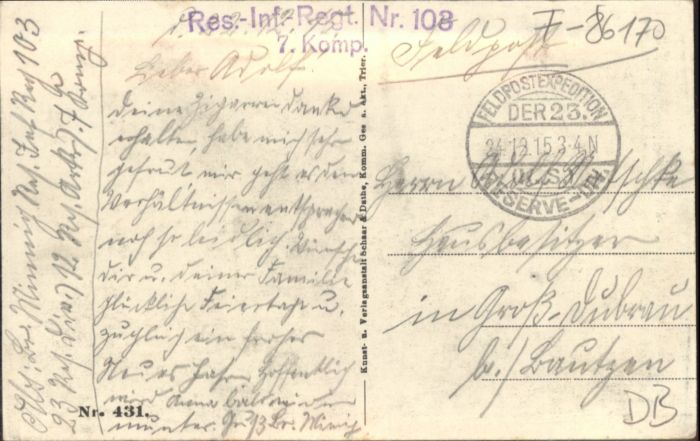 Res.-Inf.-Regt. Nr. 103
7. Komp.
F-86170
Feldpost
Lieber Adolf!
Deine Zigarren dankend
erhalten, habe mich sehr
gefreut mir geht es den
Verhältnissen entsprechend
noch so leidlich. Wünsche
dir u. deiner Familie
glückliche Feiertage u.
zugleich ein frohes
Neues Jahr. Hoffentlich
wird Anna bald wieder
munter. Gruß Br.
Nr. 431.
Res. Inf Reg 103
23 Res. Div. 12 Res Armee
Kunst- u. Verlagsanstalt Schaar & Dathe, Komm. Ges a. Akt., Trier.
FELDPOSTEXPEDITION
DER 23.
24.12.15 3-4 N
RESERVE-DIV.
Herrn
Hausbesitzer
in Groß-Dubrau
b./ Bautzen
DB